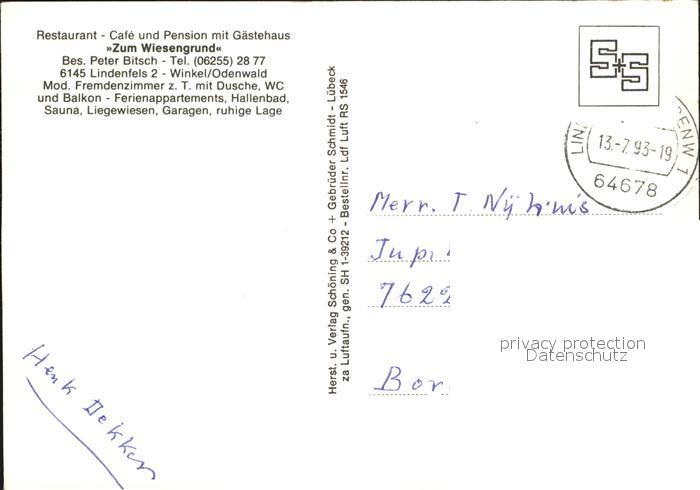 Restaurant - Café und Pension mit Gästehaus
»Zum Wiesengrund«
Bes. Peter Bitsch - Tel. (06255) 28 77
6145 Lindenfels 2 - Winkel/Odenwald
Mod. Fremdenzimmer z. T. mit Dusche, WC
und Balkon - Ferienappartements, Hallenbad,
Sauna, Liegewiesen, Garagen, ruhige Lage
Herst. u. Verlag Schöning & Co + Gebrüder Schmidt - Lübeck
za Luftaufn., gen. SH 1-39212 - Bestellnr. Ldf Luft RS 1546
S+S
13.-7.93-19
64678
Merr. T Nijhuis
7622
Bor
privacy protection
Datenschutz
Henk Dekker